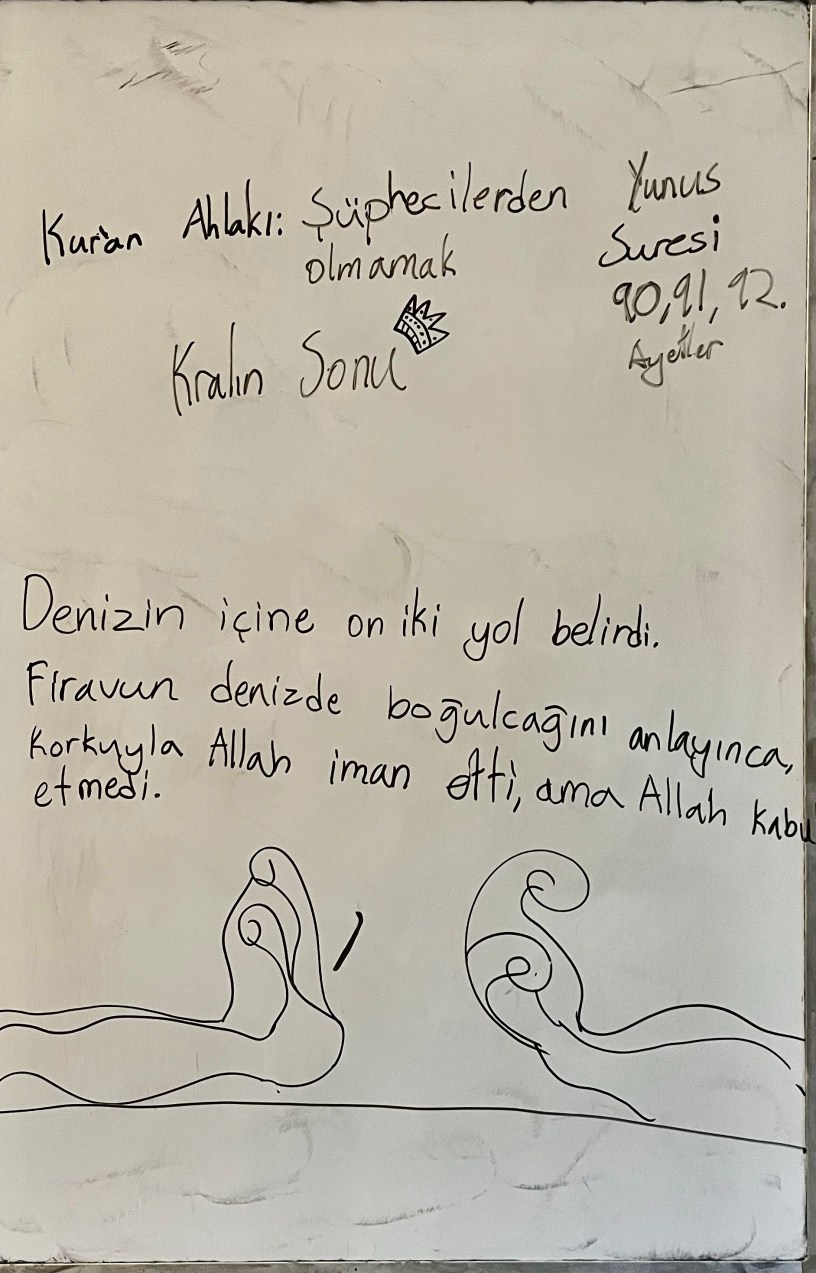 Kur'an Ahlakı: Şüphecilerden
olmamak
Kralın Sonu
Yunus
Suresi
90,91,92.
Ayetler
Denizin içine on iki yol belirdi.
Firavun denizde boğulcağını anlayınca,
korkuyla Allah iman etti, ama Allah kabu
etmedi.